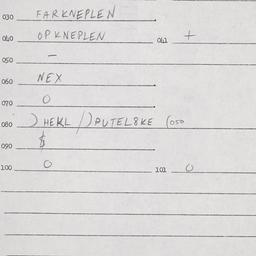 030 FARKNEPLEN
040 OPKNEPLEN 041 +
050 –
060 NEX
070 0
080 ) HEKL / ) PUTEL8KE (050
090 $
100 0 101 0